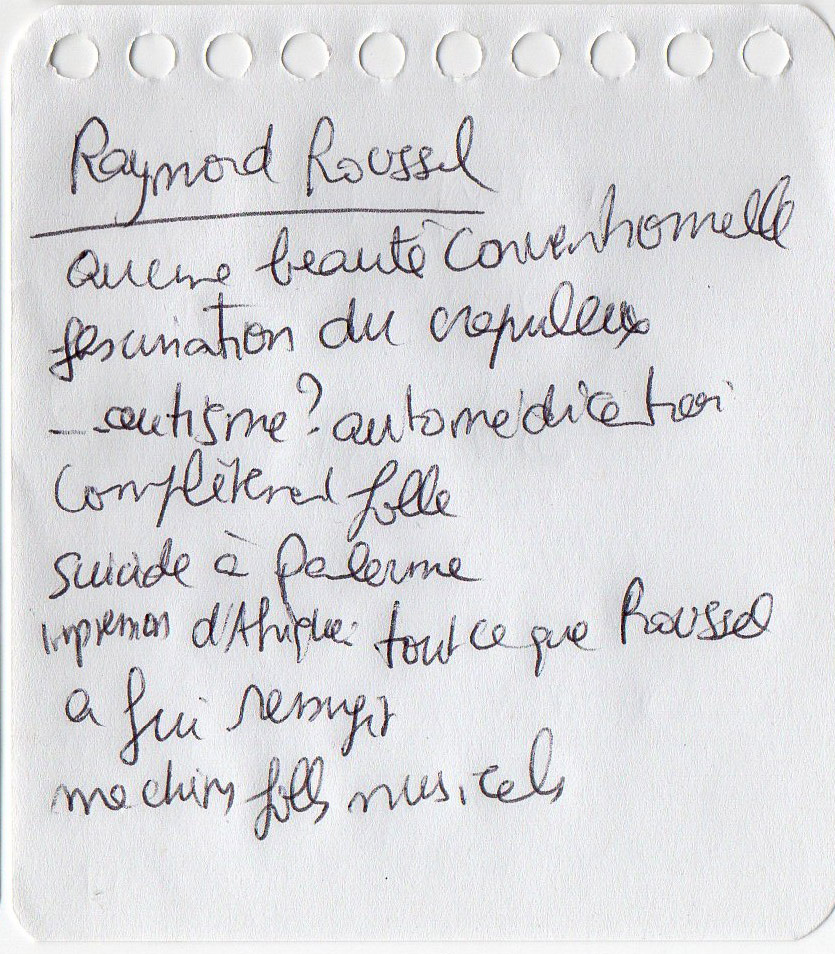 Raymond Roussel
aucune beauté conventionnelle
fascination du crapuleux
_ autisme? automédication
Complètement folle
suicide à Palerme
Impressions d'Afrique: tout ce que Roussel
a fui ressurgit
machines folles musicales